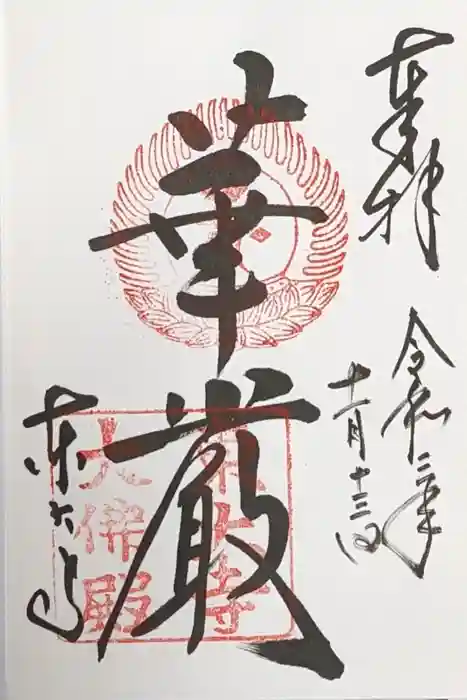 奉拝
令和三年
十一月十三日
華厳
東大寺
東大寺
大佛殿